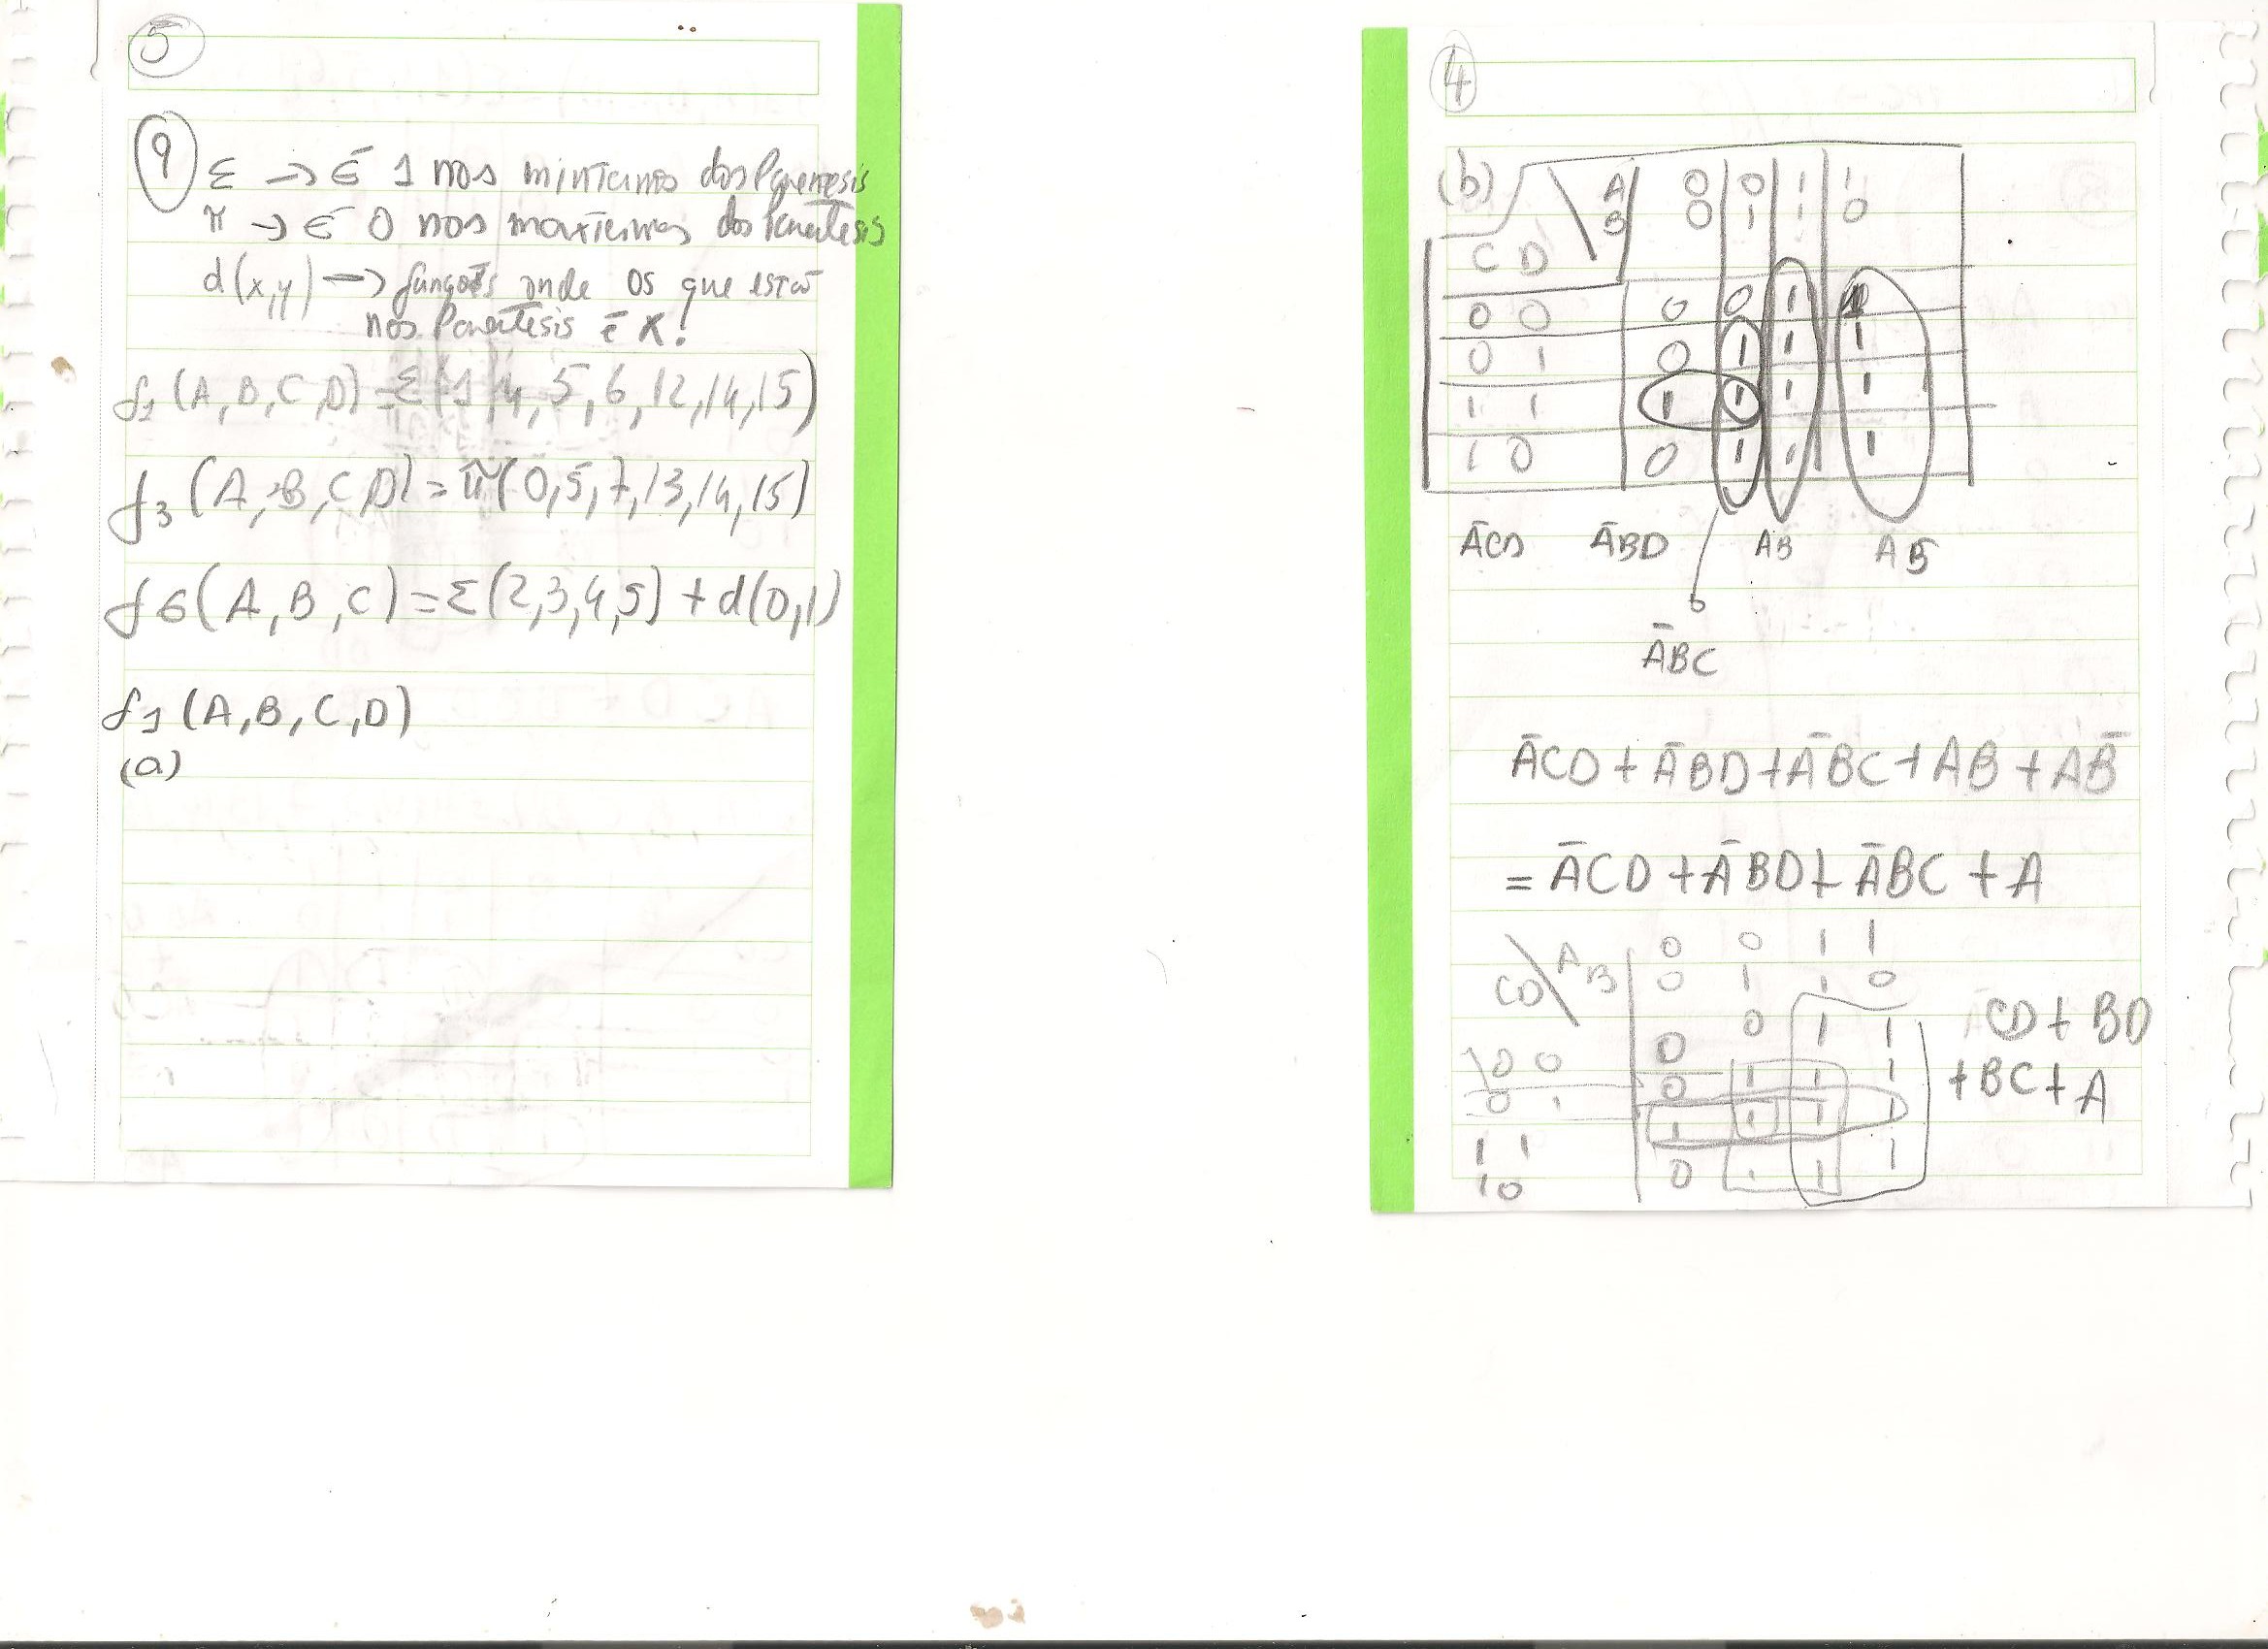 5
9
Σ → É 1 nos mintermos dos Parentesis
π → É 0 nos maxtermos dos Parentesis
d(x,y) → funções onde os que estão
nos Parentesis é X!
f1 (A,B,C,D) = Σ(1,4,5,6,12,14,15)
f3 (A,B,C,D) = π(0,5,7,13,14,15)
f6 (A,B,C) = Σ(2,3,4,5) + d(0,1)
f1 (A,B,C,D)
(a)
4
(b) A 0 0 1 1
B 0 1 1 0
C D
0 0 0 0 1 1
0 1 0 1 1 1
1 1 1 1 1 1
1 0 0 1 1 1
ĀCD ĀBD AB AB̄
ĀBC
ĀCD + ĀBD + ĀBC + AB + AB̄
= ĀCD + ĀBD + ĀBC + A
CD A B 0 0 1 1
0 1 1 0
0 0 0 0 1 1
0 1 0 1 1 1
1 1 1 1 1 1
1 0 0 1 1 1
CD + BD
+ BC + A